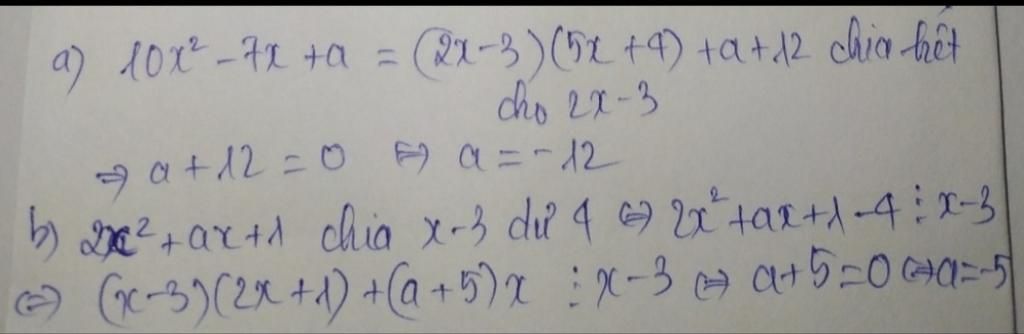 a) 10x² - 7x + a = (2x-3)(5x+4) + a + 12 chia hết
cho 2x-3
⇒ a + 12 = 0 ⇔ a = -12
b) 2x² + ax + 1 chia x-3 dư 4 ⇔ 2x² + ax + 1 - 4 ⋮ x-3
⇔ (x-3)(2x+1) + (a+5)x ⋮ x-3 ⇔ a+5=0 ⇔ a=-5